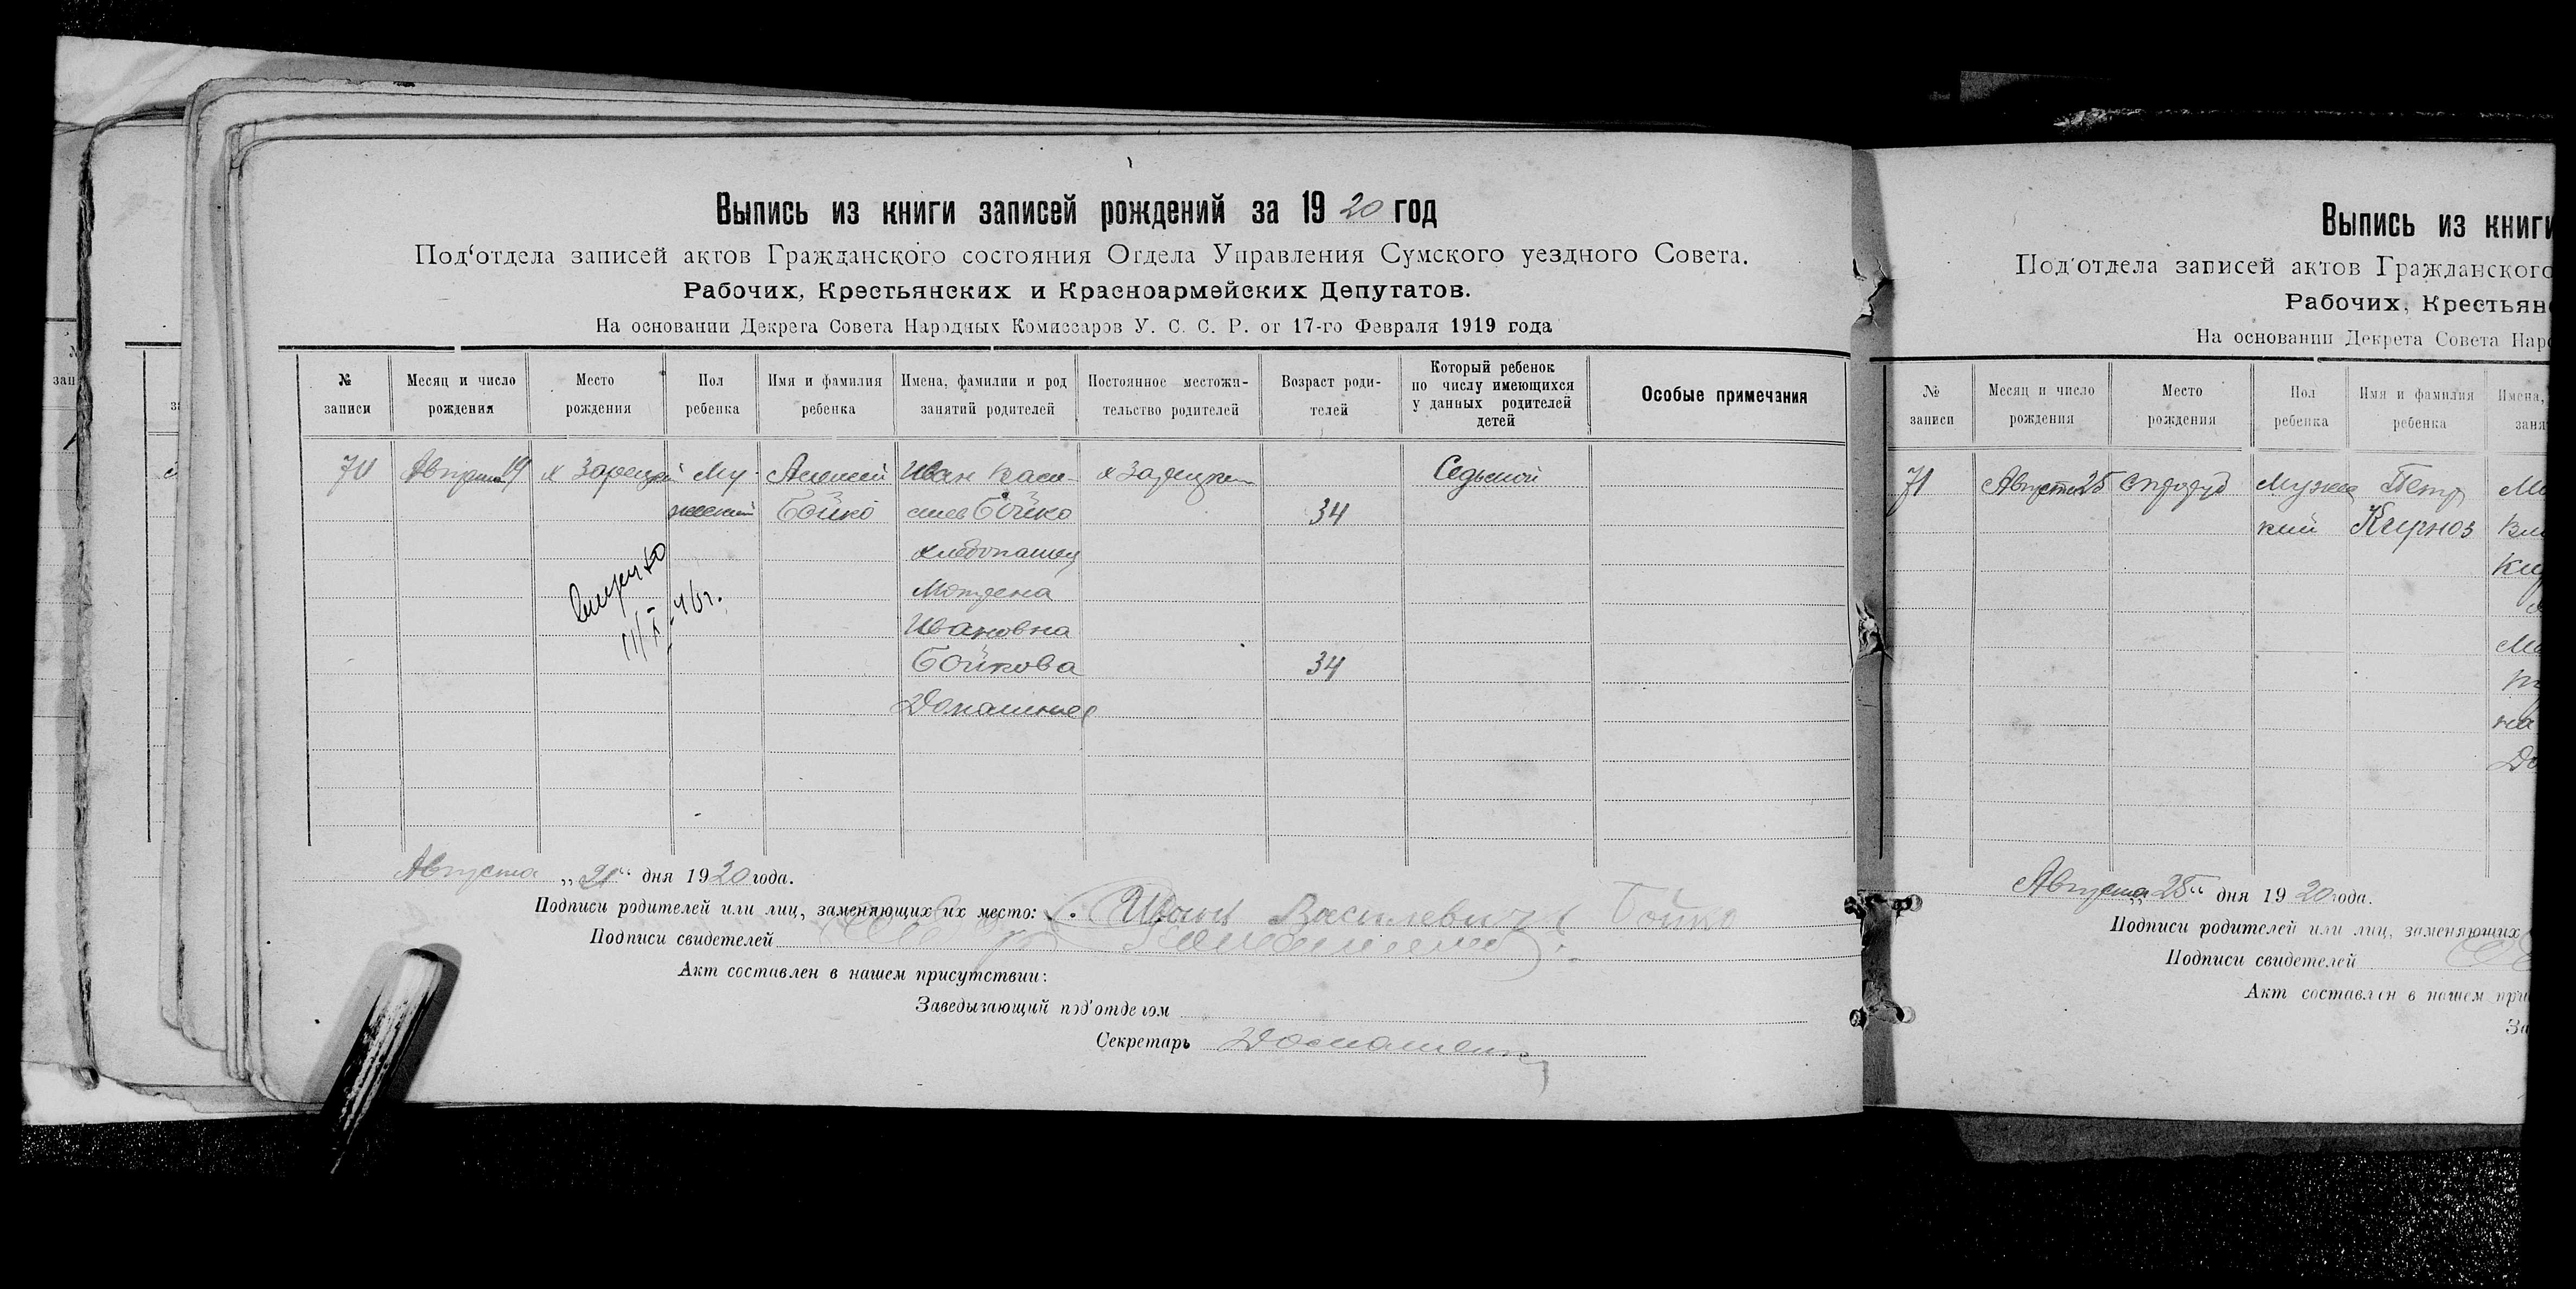 Выпись из книги записей рождений за 1920 год
Под‘отдела записей актов Гражданского состояния Отдела Управления Сумского уездного Совета.
Рабочих, Крестьянских и Красноармейских Депутатов.
На основании Декрета Совета Народных Комиссаров У. С. С. Р. от 17-го Февраля 1919 года
№ записи
Месяц и число рождения
Место рождения
Пол ребенка
Имя и фамилия ребенка
Имена, фамилии и род занятий родителей
Постоянное местожи-
тельство родителей
Возраст роди-
телей
Который ребенок
по числу имеющихся
у данных родителей
детей
Особые примечания
70 Августа 19 х Зарецкий Му- Алексей Иван Васи- х Зарецкий Седьмой
жеский Бойко сильев Бойко 34
хлебопашец
Мотрена
Ивановна
Бойкова 34
Домашнее
46г.
Августа „21“ дня 1920 года.
Подписи родителей или лиц, заменяющих их место: Иван Василевич Бойко
Подписи свидетелей
Акт составлен в нашем присутствии:
Заведывающий под'отделом
Секретарь
Выпись из книги
Под'отдела записей актов Гражданского
Рабочих, Крестьян
На основании Декрета Совета Наро
№ записи
Месяц и число рождения
Место рождения
Пол ребенка
Имя и фамилия ребенка
Имена,
заня
71 Августа 25 Мужес Петр
кий Кирноз
Августа 25“ дня 1920 года.
Подписи родителей или лиц, заменяющих
Подписи свидетелей
Акт составлен в нашем при
За